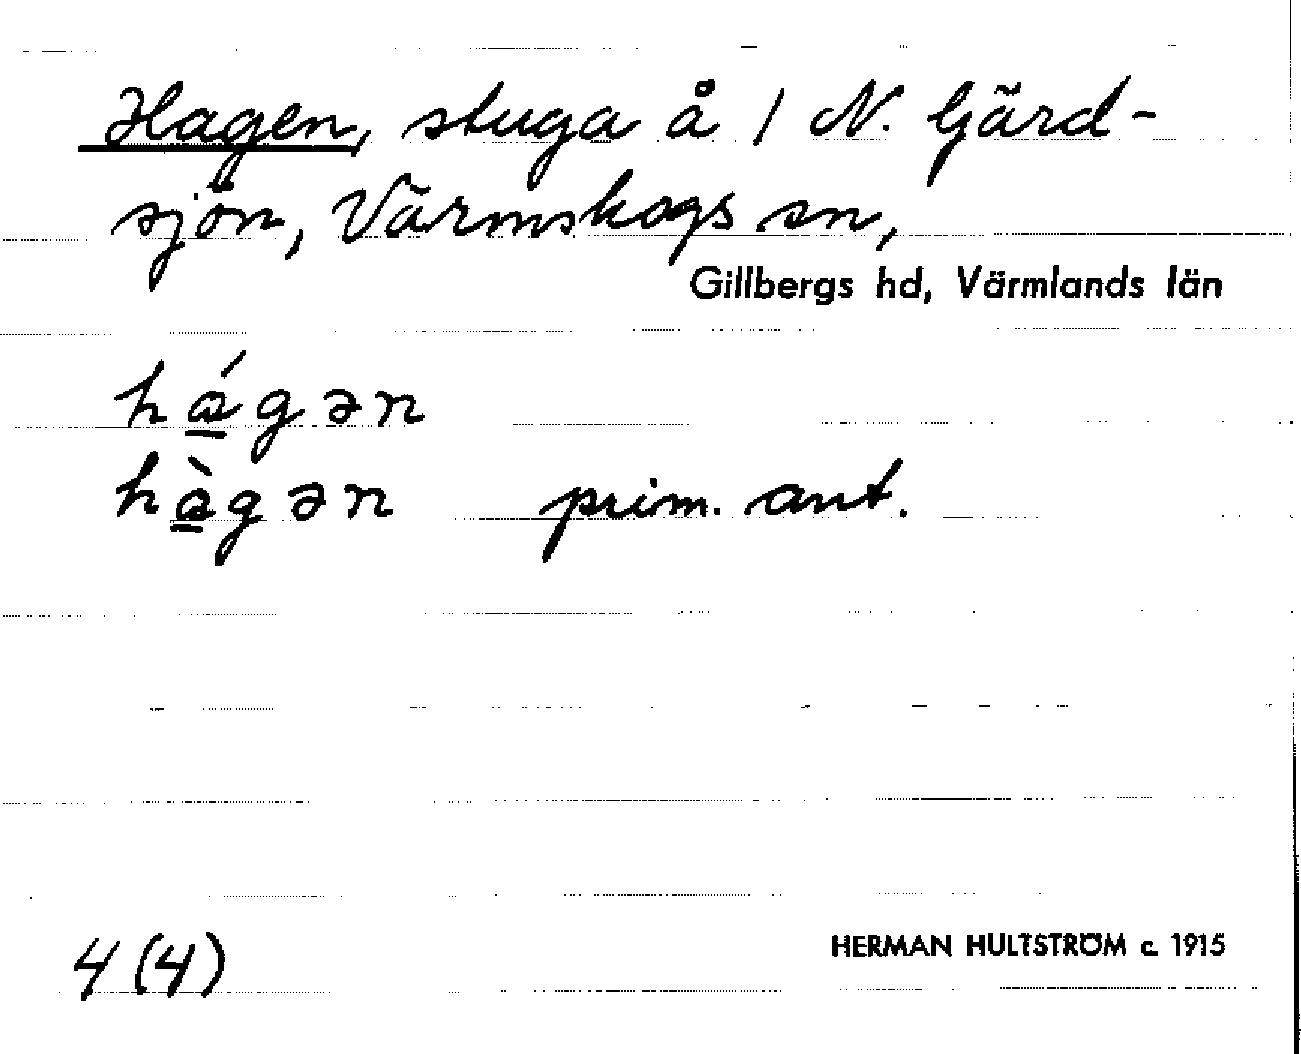 Hagen, stuga å 1 N. Gärd-
sjön, Värmskogs sn,
Gillbergs hd, Värmlands län
há̲gən
hà̲gən prim. ant.
4 (4)
HERMAN HULTSTRÖM c. 1915